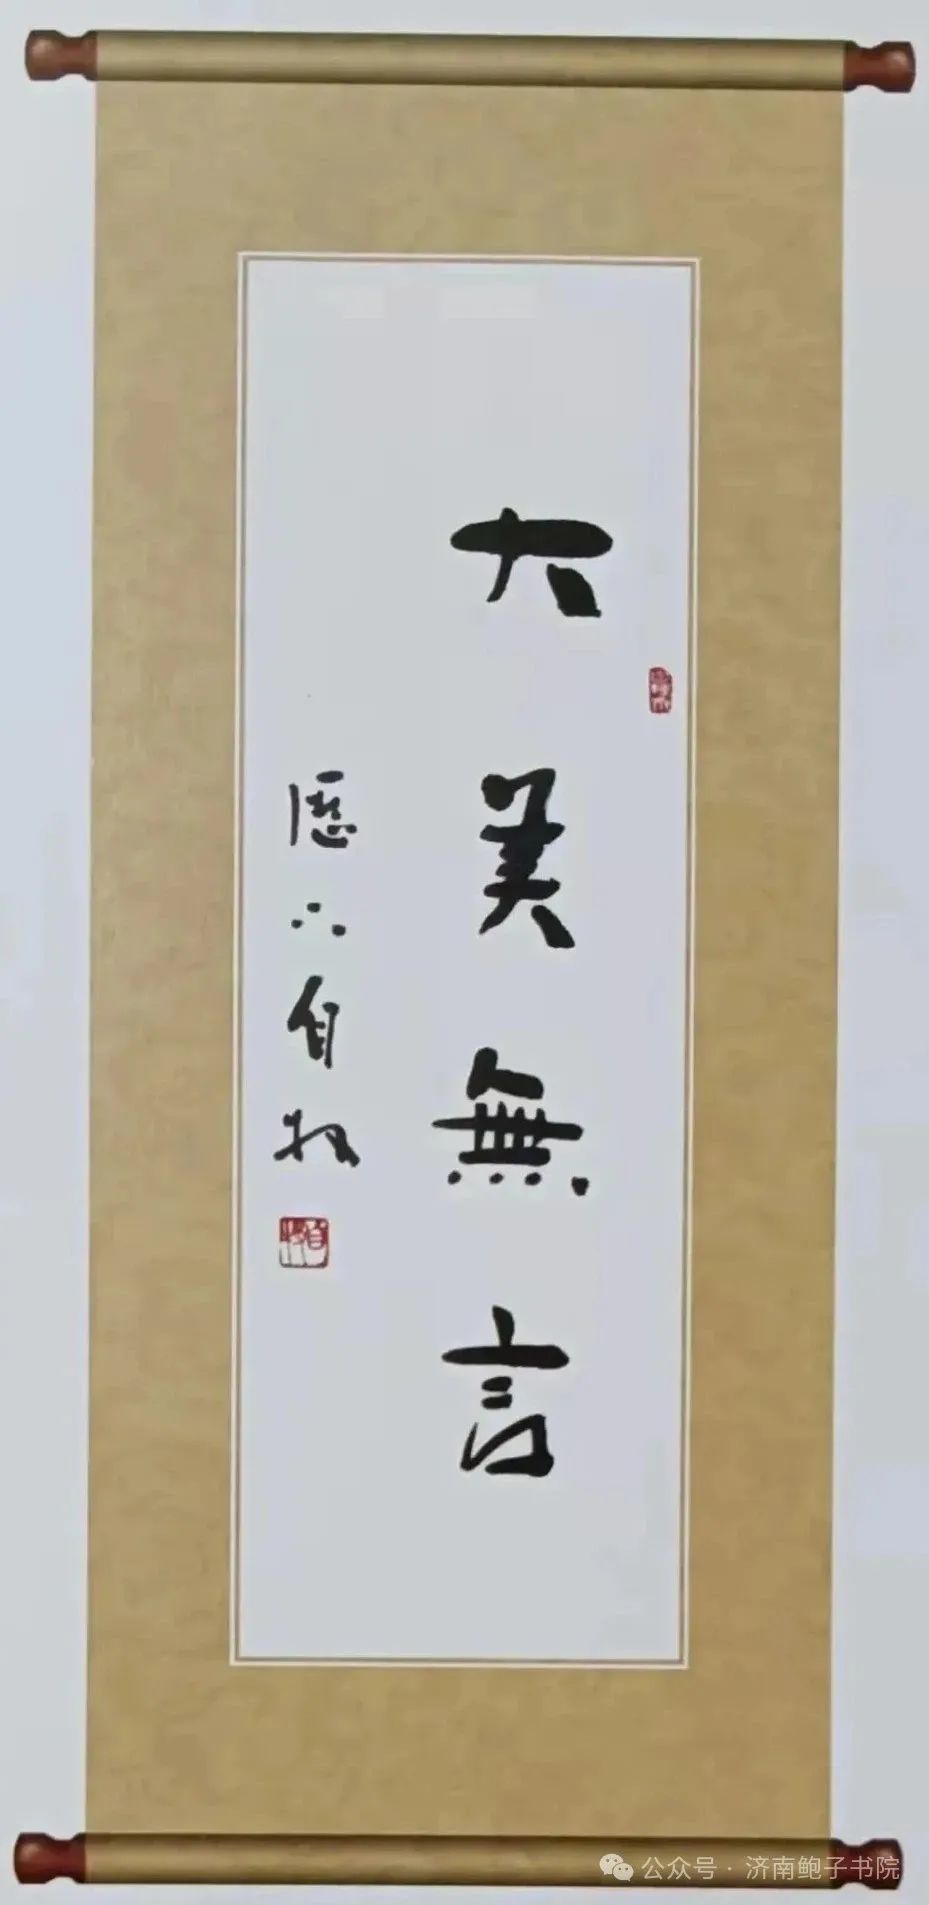 大美無言
歷下自牧
公众号·济南鲍子书院